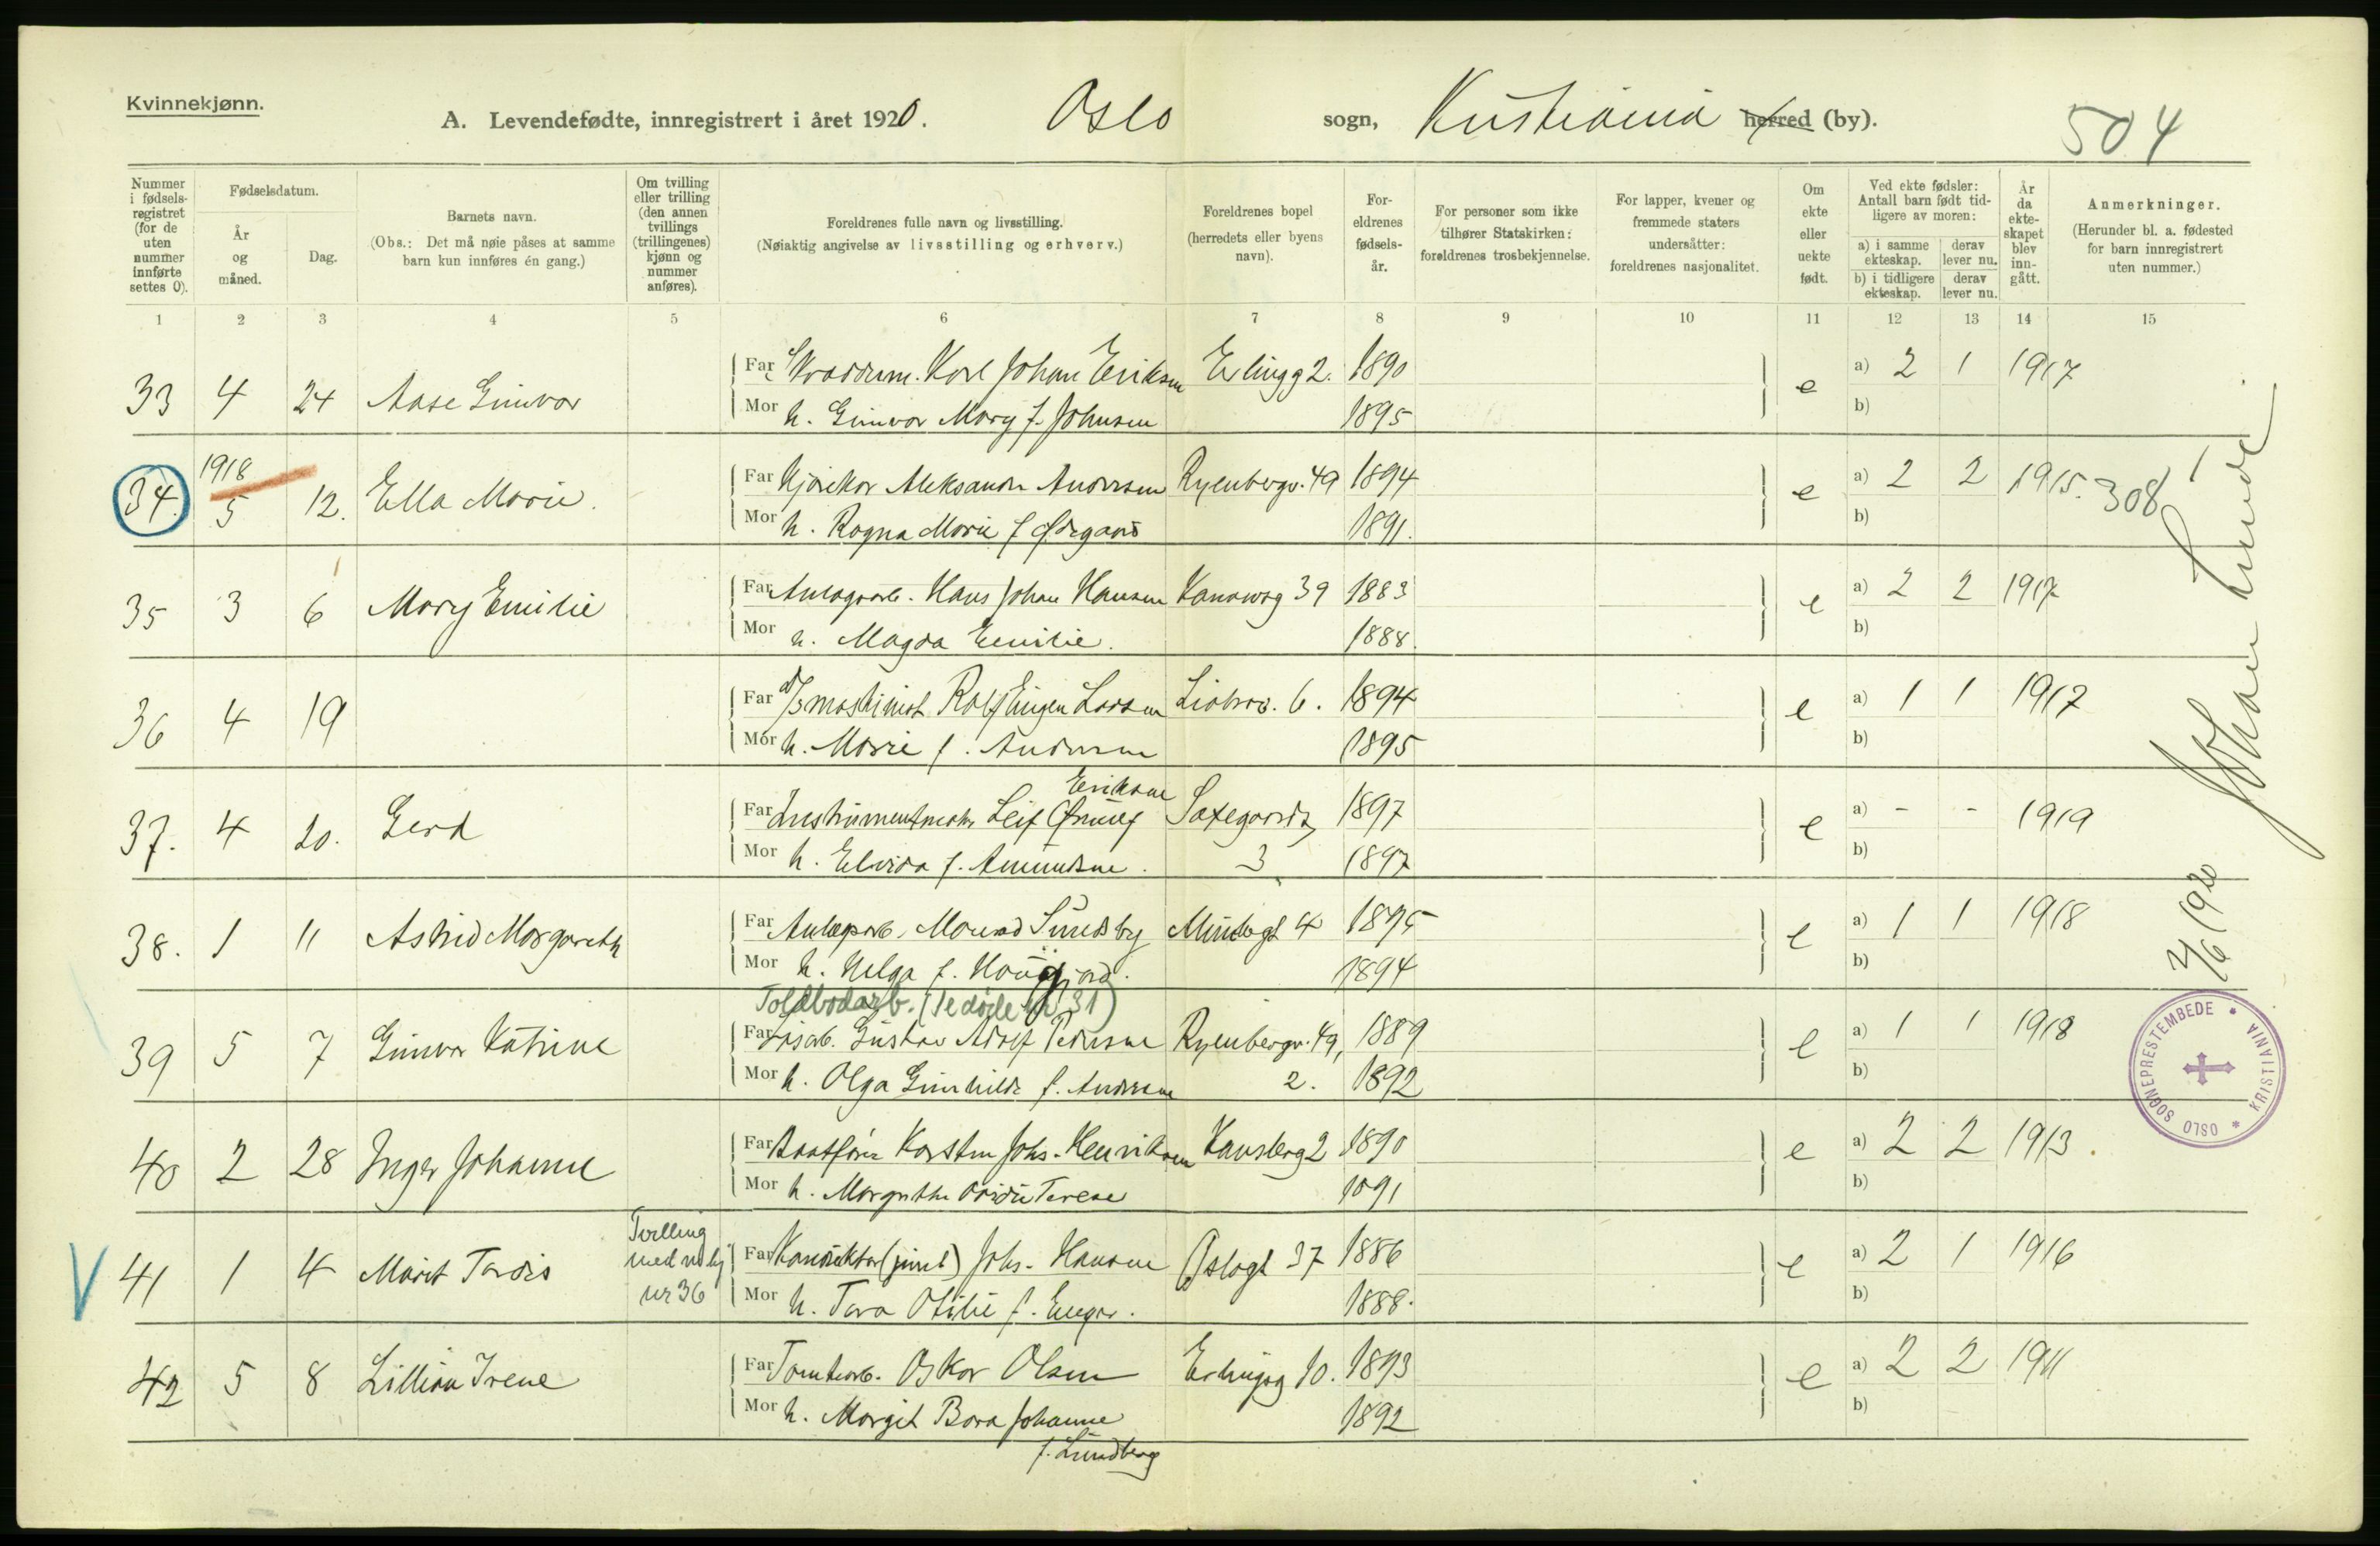 Kvinnekjønn.
A. Levendefødte, innregistrert i året 1920. Oslo sogn, Kristiania herred (by). 504
Nummer i fødsels-registret (for de uten nummer innførte settes 0).
Fødselsdatum.
År og måned.
Dag.
Barnets navn.
(Obs.: Det må nøie påses at samme barn kun innføres én gang.)
Om tvilling eller trilling (den annen tvillings (trillingenes) kjønn og nummer anføres).
Foreldrenes fulle navn og livsstilling.
(Nøiaktig angivelse av livsstilling og erhverv.)
Foreldrenes bopel (herredets eller byens navn).
For-eldrenes fødsels-år.
For personer som ikke tilhører Statskirken: foreldrenes trosbekjennelse.
For lapper, kvener og fremmede staters undersåtter: foreldrenes nasjonalitet.
Om ekte eller uekte født.
Ved ekte fødsler: Antall barn født tid-ligere av moren:
a) i samme ekteskap.
derav lever nu.
b) i tidligere ekteskap.
derav lever nu.
År da ekte-skapet blev inn-gått.
Anmerkninger.
(Herunder bl. a. fødested for barn innregistrert uten nummer.)
1 2 3 4 5 6 7 8 9 10 11 12 13 14 15
33 4 24 Aase Gunvor Far Karl Johan Eriksen Erlingg 2. 1890 e a) 2 1 1917
Mor h. Gunvor Mary f. Johnsen 1895 b)
34. 1918 5 12. Ella Marie. Far Aleksander Andersen Ryenbergv. 49 1894 e a) 2 2 1915. 308
Mor h. Ragna Marie f Ødegaard 1891. b)
35 3 6 Mary Emilie Far Hans Johan Hansen 39 1883 e a) 2 2 1917
Mor h. Magda Emilie. 1888. b)
36 4 19 Far maskinist Rolf Eugen Larsen 6. 1894 e a) 1 1 1917
Mor h. Marie f. Andersen 1895 b)
37. 4 20. Gerd Far Leif Eriksen 1897 e a) - - 1919
Mor h. Elvira f. Amundsen. 3 1897 b)
38. 1 11 Astrid Margareth Far Sundsby 4 1895 e a) 1 1 1918
Mor h. Helga f. 1894 b)
Toldbodarb. (Se døde nr 31)
39 5 7 Gunvor Katrine Far Gustav Adolf Pedersen Ryenbergv. 49, 1889 e a) 1 1 1918
Mor h. Olga Gunhilde f. Andersen 2. 1892 b)
40 2 28 Inger Johanne Far Karsten Johs. Henriksen 2 1890 e a) 2 2 1913.
Mor h. Terese 1891 b)
41 1 4 Marit Tordis Tvilling med nr 36 Far Johs. Hansen Oslogt 37 1886 e a) 2 1 1916
Mor h. Tora Otilie f. 1888. b)
42 5 8 Lillian Irene Far Tomtearb. Oskar Olsen Erlingsg 10. 1893 e a) 2 2 1911
Mor h. Margit Bora Johanne 1892 b)
f. Lundberg
2/6 1920
Johan Lunde
OSLO SOGNEPRESTEMBEDE * KRISTIANIA *